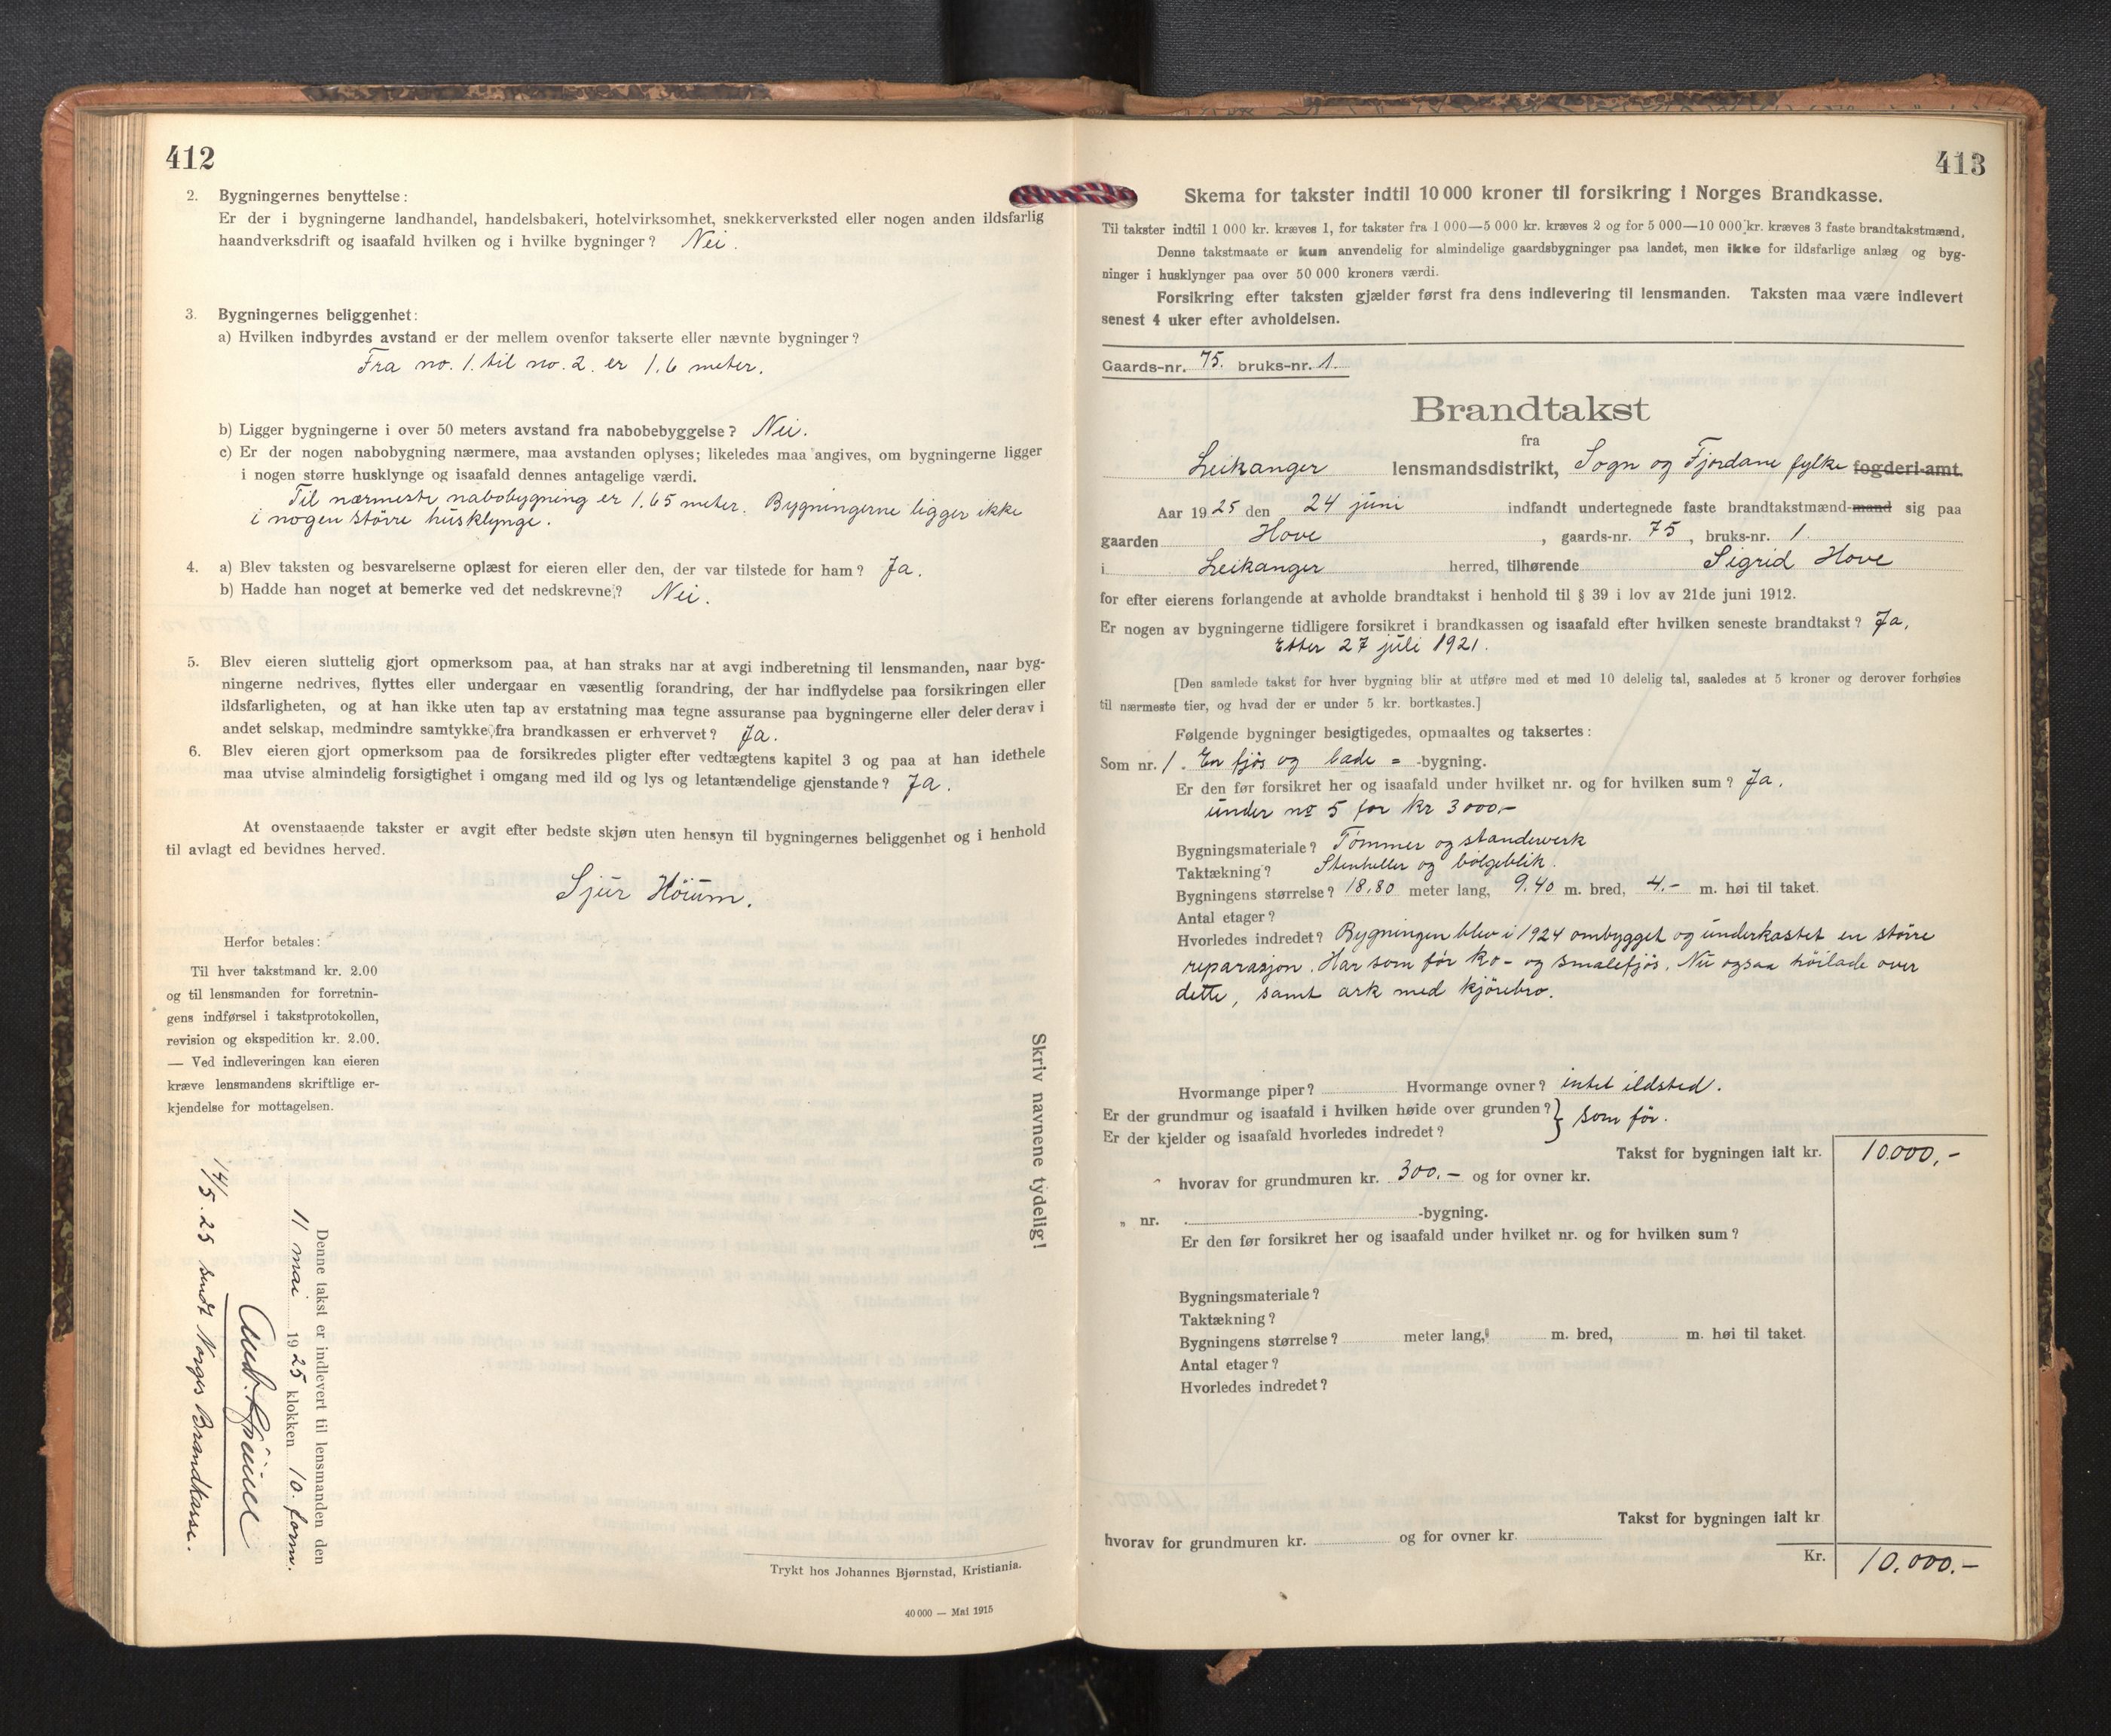 412
2. Bygningernes benyttelse:
Er der i bygningerne landhandel, handelsbakeri, hotelvirksomhet, snekkerverksted eller nogen anden ildsfarlig
haandverksdrift og isaafald hvilken og i hvilke bygninger? Nei.
3. Bygningernes beliggenhet:
a) Hvilken indbyrdes avstand er der mellem ovenfor takserte eller nævnte bygninger?
Fra no. 1. til no. 2. er 1.6 meter.
b) Ligger bygningerne i over 50 meters avstand fra nabobebyggelse? Nei.
c) Er der nogen nabobygning nærmere, maa avstanden oplyses; likeledes maa angives, om bygningerne ligger
i nogen større husklynge og isaafald dennes antagelige værdi.
Til nærmeste nabobygning er 1.65 meter. Bygningerne ligger ikke
i nogen större husklynge.
4. a) Blev taksten og besvarelserne oplæst for eieren eller den, der var tilstede for ham? Ja.
b) Hadde han noget at bemerke ved det nedskrevne? Nei.
5. Blev eieren sluttelig gjort opmerksom paa, at han straks nar at avgi indberetning til lensmanden, naar byg-
ningerne nedrives, flyttes eller undergaar en væsentlig forandring, der har indflydelse paa forsikringen eller
ildsfarligheten, og at han ikke uten tap av erstatning maa tegne assuranse paa bygningerne eller deler derav i
andet selskap, medmindre samtykke fra brandkassen er erhvervet? Ja.
6. Blev eieren gjort opmerksom paa de forsikredes pligter efter vedtægtens kapitel 3 og paa at han idethele
maa utvise almindelig forsigtighet i omgang med ild og lys og letantændelige gjenstande? Ja.
At ovenstaaende takster er avgit efter bedste skjøn uten hensyn til bygningernes beliggenhet og i henhold
til avlagt ed bevidnes herved.
Sjur Höium.
Herfor betales:
Til hver takstmand kr. 2.00
og til lensmanden for forretnin-
gens indførsel i takstprotokollen,
revision og ekspedition kr. 2.00.
— Ved indleveringen kan eieren
kræve lensmandens skriftlige er-
kjendelse for mottagelsen.
Skriv navnene tydelig!
Denne takst er indlevert til lensmanden den
11 mai 1925 klokken 10. form.
14/5.25 sendt Norges Brandkasse.
Trykt hos Johannes Bjørnstad, Kristiania.
40 000 — Mai 1915
413
Skema for takster indtil 10 000 kroner til forsikring i Norges Brandkasse.
Til takster indtil 1 000 kr. kræves 1, for takster fra 1 000—5 000 kr. kræves 2 og for 5 000—10 000 kr. kræves 3 faste brandtakstmænd.
Denne takstmaate er kun anvendelig for almindelige gaardsbygninger paa landet, men ikke for ildsfarlige anlæg og byg-
ninger i husklynger paa over 50 000 kroners værdi.
Forsikring efter taksten gjælder først fra dens indlevering til lensmanden. Taksten maa være indlevert
senest 4 uker efter avholdelsen.
Gaards-nr. 75. bruks-nr. 1.
Brandtakst
fra
Leikanger lensmandsdistrikt, Sogn og Fjordane fylke fogderi-amt.
Aar 1925 den 24 juni indfandt undertegnede faste brandtakstmænd-mand sig paa
gaarden Hove, gaards-nr. 75, bruks-nr. 1.
i Leikanger herred, tilhørende Sigrid Hove
for efter eierens forlangende at avholde brandtakst i henhold til § 39 i lov av 21de juni 1912.
Er nogen av bygningerne tidligere forsikret i brandkassen og isaafald efter hvilken seneste brandtakst? Ja,
Etter 27 juli 1921.
[Den samlede takst for hver bygning blir at utføre med et med 10 delelig tal, saaledes at 5 kroner og derover forhøies
til nærmeste tier, og hvad der er under 5 kr. bortkastes.]
Følgende bygninger besigtigedes, opmaaltes og taksertes:
Som nr. 1. En fjös og lade = -bygning.
Er den før forsikret her og isaafald under hvilket nr. og for hvilken sum? Ja,
under no 5 for kr 3000,-
Bygningsmateriale? Tömmer og standerverk
Taktækning? Stenheller og bölgeblik.
Bygningens størrelse? 18,80 meter lang, 9.40 m. bred, 4.- m. høi til taket.
Antal etager?
Hvorledes indredet? Bygningen blev i 1924 ombygget og underkastet en större
reparasjon. Har som för ko- og smalefjös. Nu ogsaa höilade over
dette, samt ark med kjörebro.
Hvormange piper? Hvormange ovner? intet ildsted.
Er der grundmur og isaafald i hvilken høide over grunden? } som för.
Er der kjelder og isaafald hvorledes indredet?
Takst for bygningen ialt kr. 10.000,-
hvorav for grundmuren kr. 300.- og for ovner kr.
" nr. -bygning.
Er den før forsikret her og isaafald under hvilket nr. og for hvilken sum?
Bygningsmateriale?
Taktækning?
Bygningens størrelse? meter lang, m. bred, m. høi til taket.
Antal etager?
Hvorledes indredet?
Takst for bygningen ialt kr
hvorav for grundmuren kr. og for ovner kr.
Kr. 10.000.-